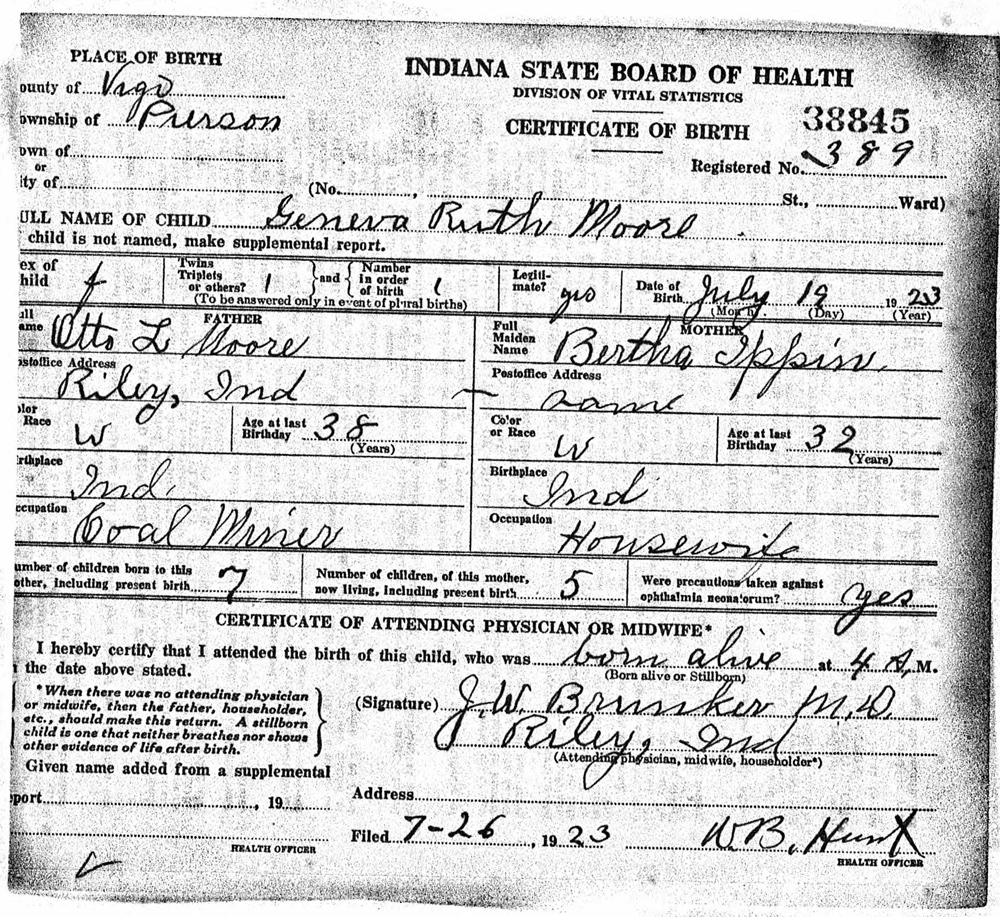 PLACE OF BIRTH
ounty of Vigo
ownship of Pierson
own of
or
ity of
INDIANA STATE BOARD OF HEALTH
DIVISION OF VITAL STATISTICS
CERTIFICATE OF BIRTH
38845
Registered No. 389
(No. , St., Ward)
ULL NAME OF CHILD Geneva Ruth Moore
child is not named, make supplemental report.
ex of hild f
Twins Triplets or others? 1 and Number in order of birth 1
(To be answered only in event of plural births)
Legiti-mate? yes
Date of Birth July 19 1923
(Month) (Day) (Year)
FATHER
ull ame Otto L Moore
ostoffice Address
Riley, Ind
olor Race W
Age at last Birthday 38
(Years)
rthplace
Ind.
ccupation
Coal Miner
MOTHER
Full Maiden Name Bertha Ippin
Postoffice Address
same
Color or Race W
Age at last Birthday 32
(Years)
Birthplace
Ind
Occupation
Housewife
umber of children born to this other, including present birth 7
Number of children, of this mother, now living, including present birth 5
Were precautions taken against ophthalmia neonatorum? yes
CERTIFICATE OF ATTENDING PHYSICIAN OR MIDWIFE*
I hereby certify that I attended the birth of this child, who was born alive at 4 A.M.
(Born alive or Stillborn)
the date above stated.
*When there was no attending physician
or midwife, then the father, householder,
etc., should make this return. A stillborn
child is one that neither breathes nor shows
other evidence of life after birth.
(Signature) J.W. Brunker M.D.
Riley, Ind
(Attending physician, midwife, householder*)
Given name added from a supplemental
port , 19
HEALTH OFFICER
Address
Filed 7-26, 1923 W.B. Hunt
HEALTH OFFICER